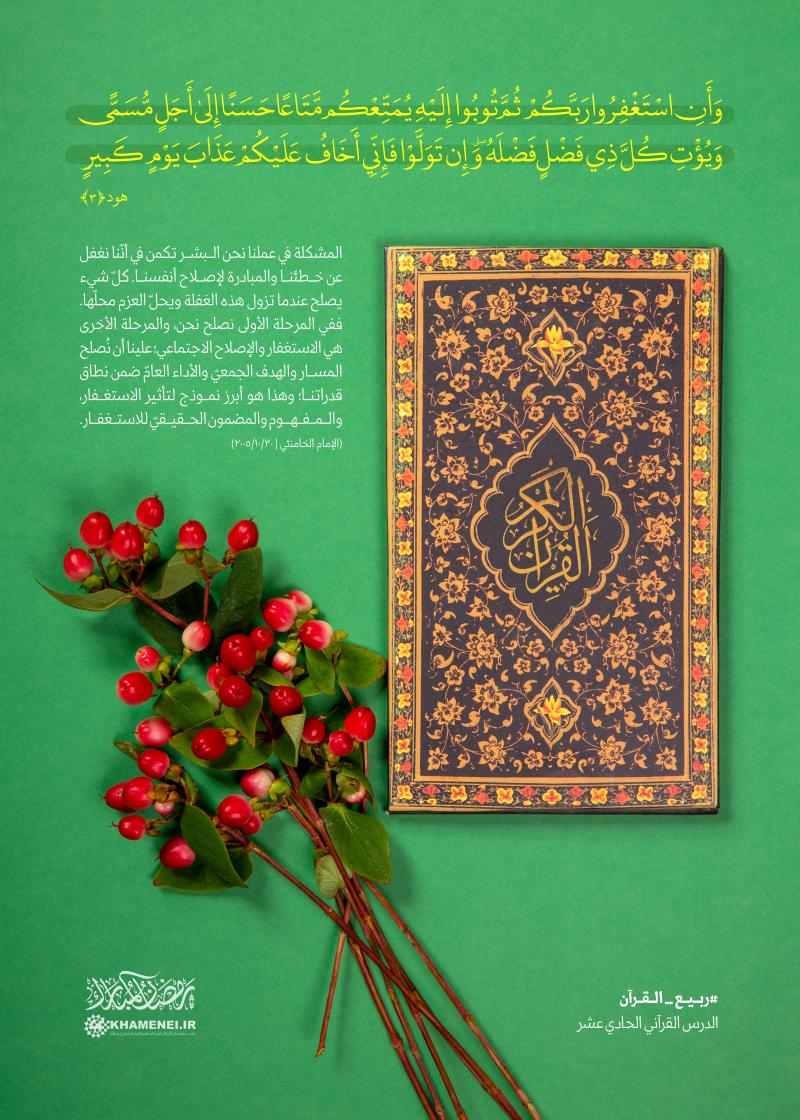 وَأَنِ اسْتَغْفِرُوا رَبَّكُمْ ثُمَّ تُوبُوا إِلَيْهِ يُمَتِّعْكُم مَّتَاعًا حَسَنًا إِلَىٰ أَجَلٍ مُّسَمًّى
وَيُؤْتِ كُلَّ ذِي فَضْلٍ فَضْلَهُ ۖ وَإِن تَوَلَّوْا فَإِنِّي أَخَافُ عَلَيْكُمْ عَذَابَ يَوْمٍ كَبِيرٍ
هود ﴿٣﴾
المشكلة في عملنا نحن البشر تكمن في أنّنا نغفل
عن خطئنا والمبادرة لإصلاح أنفسنا. كلّ شيء
يصلح عندما تزول هذه الغفلة ويحلّ العزم محلّها.
ففي المرحلة الأولى نصلح نحن، والمرحلة الأخرى
هي الاستغفار والإصلاح الاجتماعي؛ علينا أن نُصلح
المسار والهدف الجمعيّ والأداء العامّ ضمن نطاق
قدراتنا؛ وهذا هو أبرز نموذج لتأثير الاستغفار،
والمفهوم والمضمون الحقيقيّ للاستغفار.
(الإمام الخامنئي | ٢٠٠٥/١٠/٣٠)
القرآن الكريم
رمضان المبارك
KHAMENEI.IR
#ربيع_القرآن
الدرس القرآني الحادي عشر